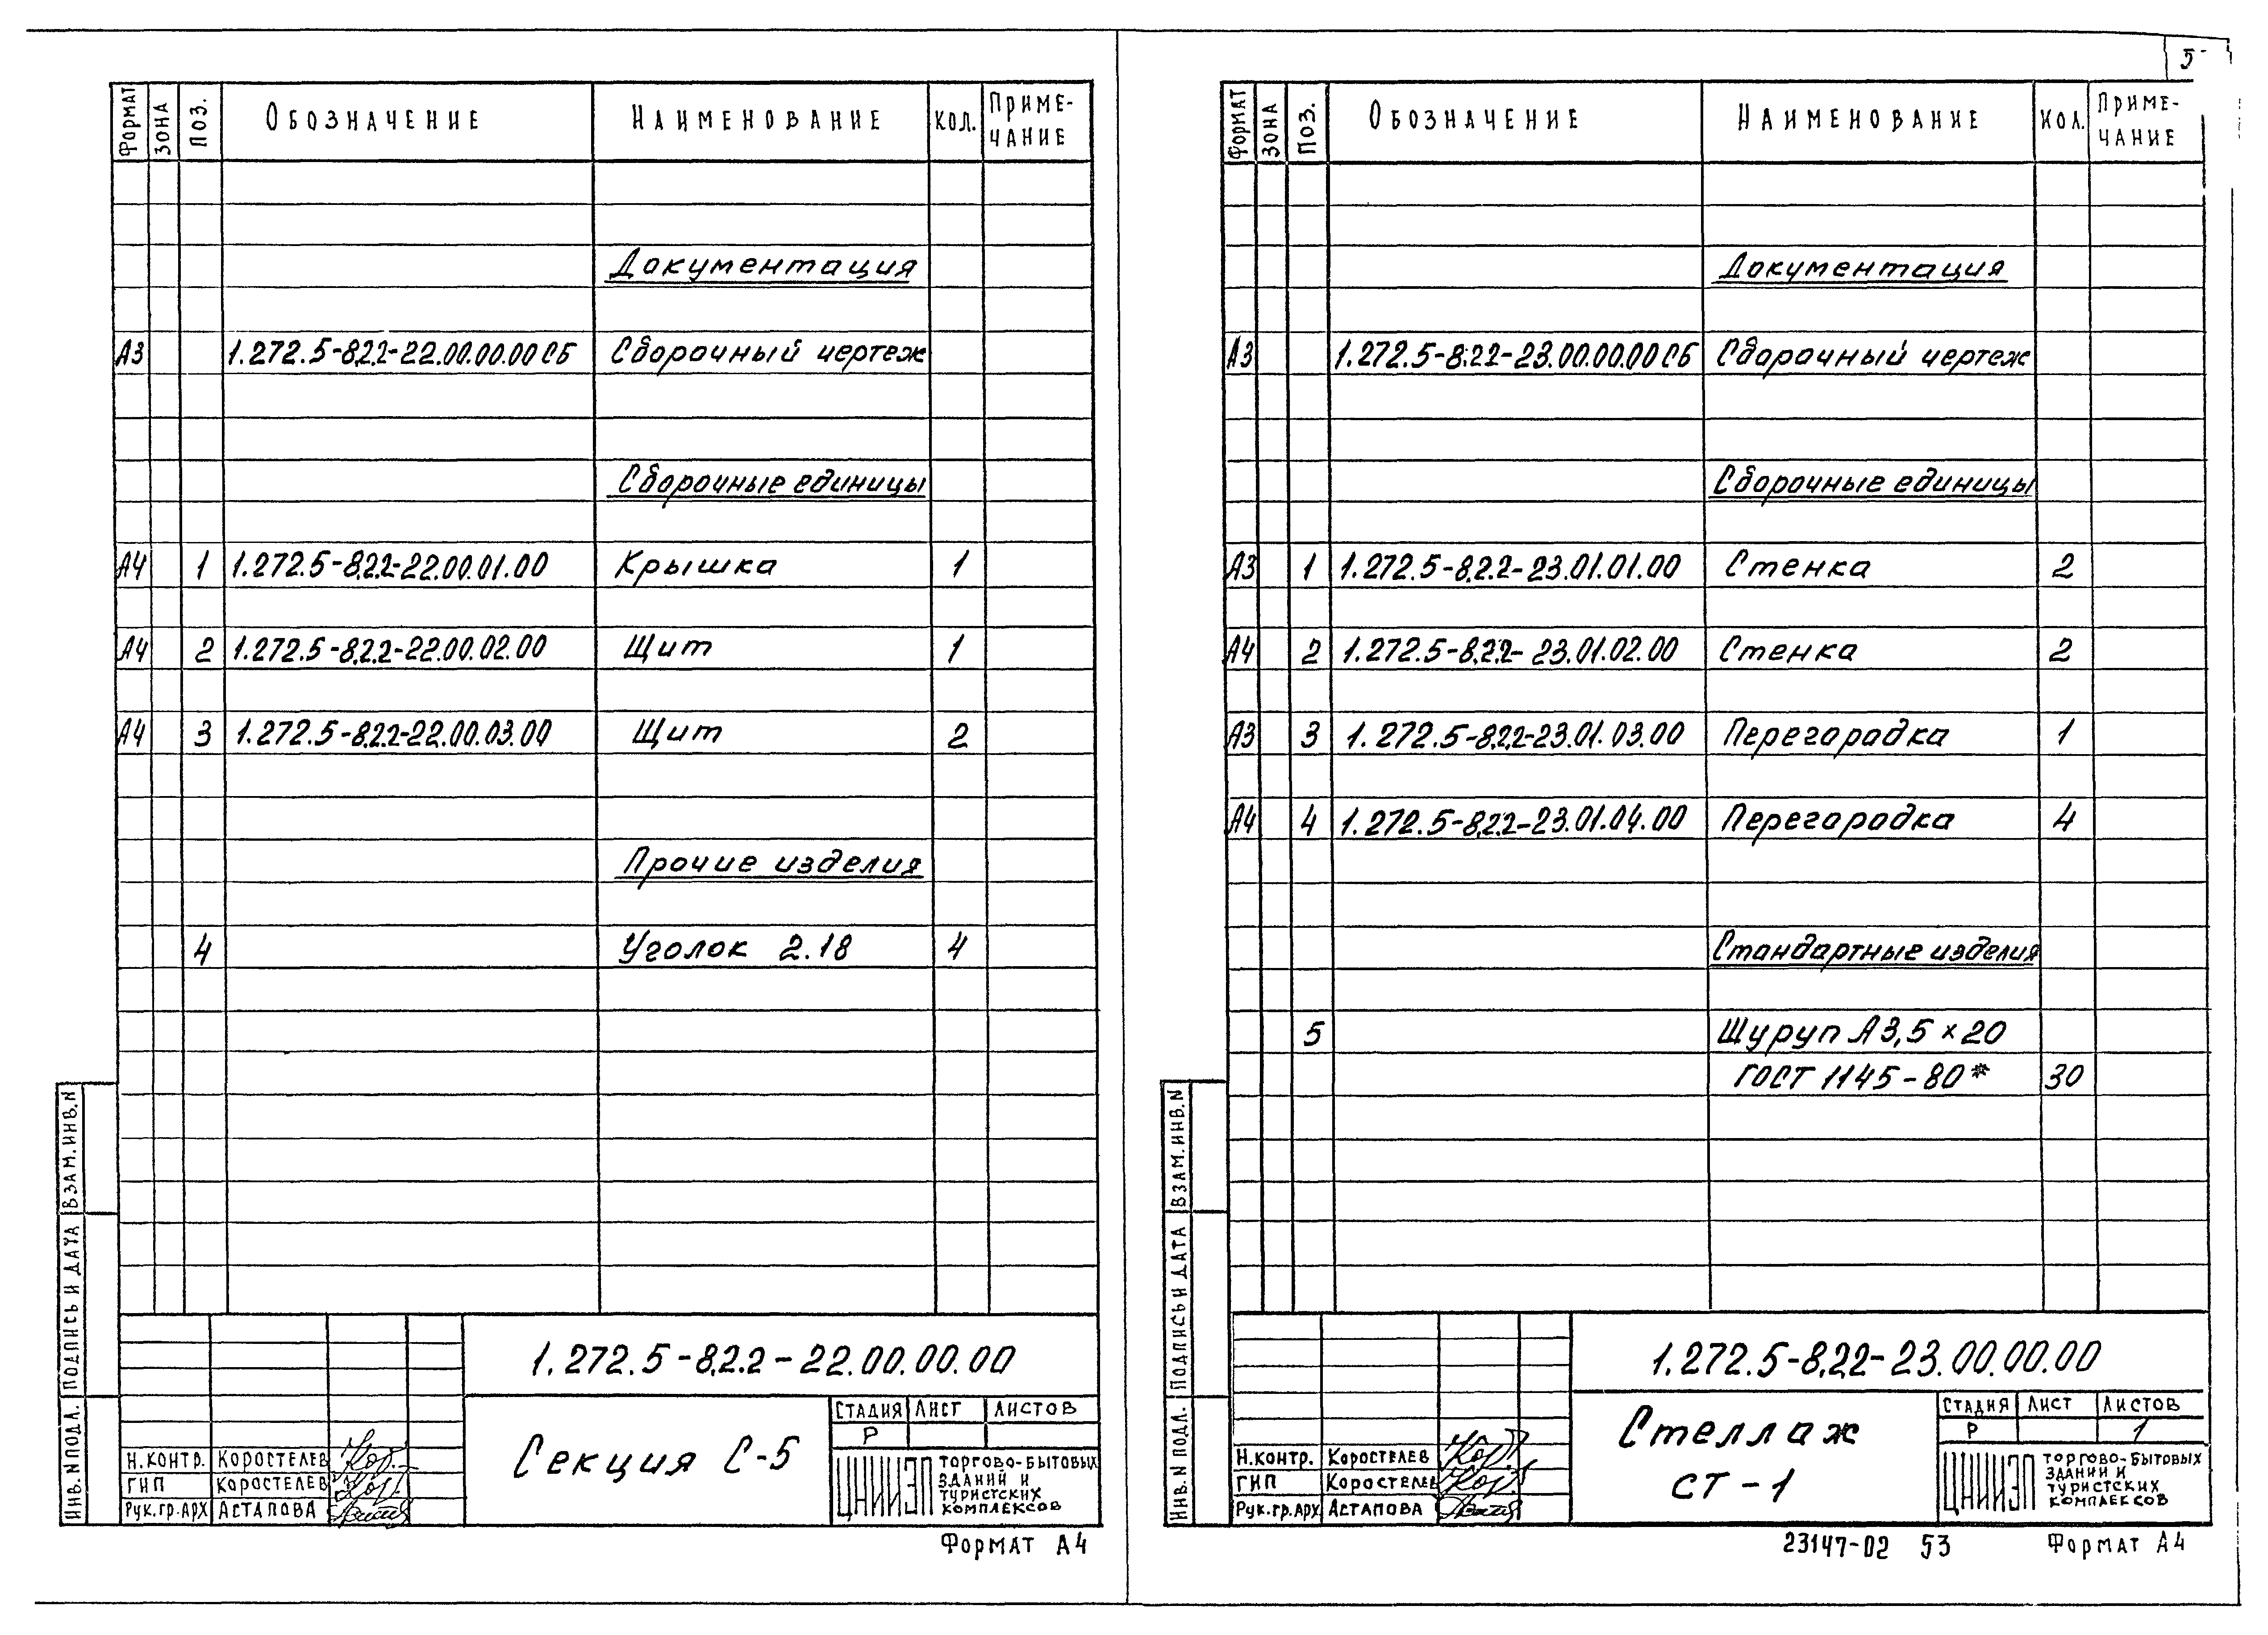 5
Формат Зона Поз. Обозначение Наименование Кол. Приме-
чание
Документация
А3 1.272.5-8.2.2-22.00.00.00 СБ Сборочный чертеж
Сборочные единицы
А4 1 1.272.5-8.2.2-22.00.01.00 Крышка 1
А4 2 1.272.5-8.2.2-22.00.02.00 Щит 1
А4 3 1.272.5-8.2.2-22.00.03.00 Щит 2
Прочие изделия
4 Уголок 2.18 4
Взам.инв.N
Подпись и дата
Инв.N подл.
1.272.5-8.2.2-22.00.00.00
Секция С-5
Стадия Лист Листов
Р
Н.контр. Коростелев
ГИП Коростелев
Рук.гр.арх Астапова
ЦНИИЭП
торгово-бытовых
зданий и
туристских
комплексов
Формат А4
Формат Зона Поз. Обозначение Наименование Кол. Приме-
чание
Документация
А3 1.272.5-8.2.2-23.00.00.00 СБ Сборочный чертеж
Сборочные единицы
А3 1 1.272.5-8.2.2-23.01.01.00 Стенка 2
А4 2 1.272.5-8.2.2-23.01.02.00 Стенка 2
А3 3 1.272.5-8.2.2-23.01.03.00 Перегородка 1
А4 4 1.272.5-8.2.2-23.01.04.00 Перегородка 4
Стандартные изделия
5 Шуруп А3,5×20
ГОСТ 1145-80* 30
Взам.инв.N
Подпись и дата
Инв.N подл.
1.272.5-8.2.2-23.00.00.00
Стеллаж
СТ-1
Стадия Лист Листов
Р 1
Н.контр. Коростелев
ГИП Коростелев
Рук.гр.арх Астапова
ЦНИИЭП
торгово-бытовых
зданий и
туристских
комплексов
23147-02 53 Формат А4